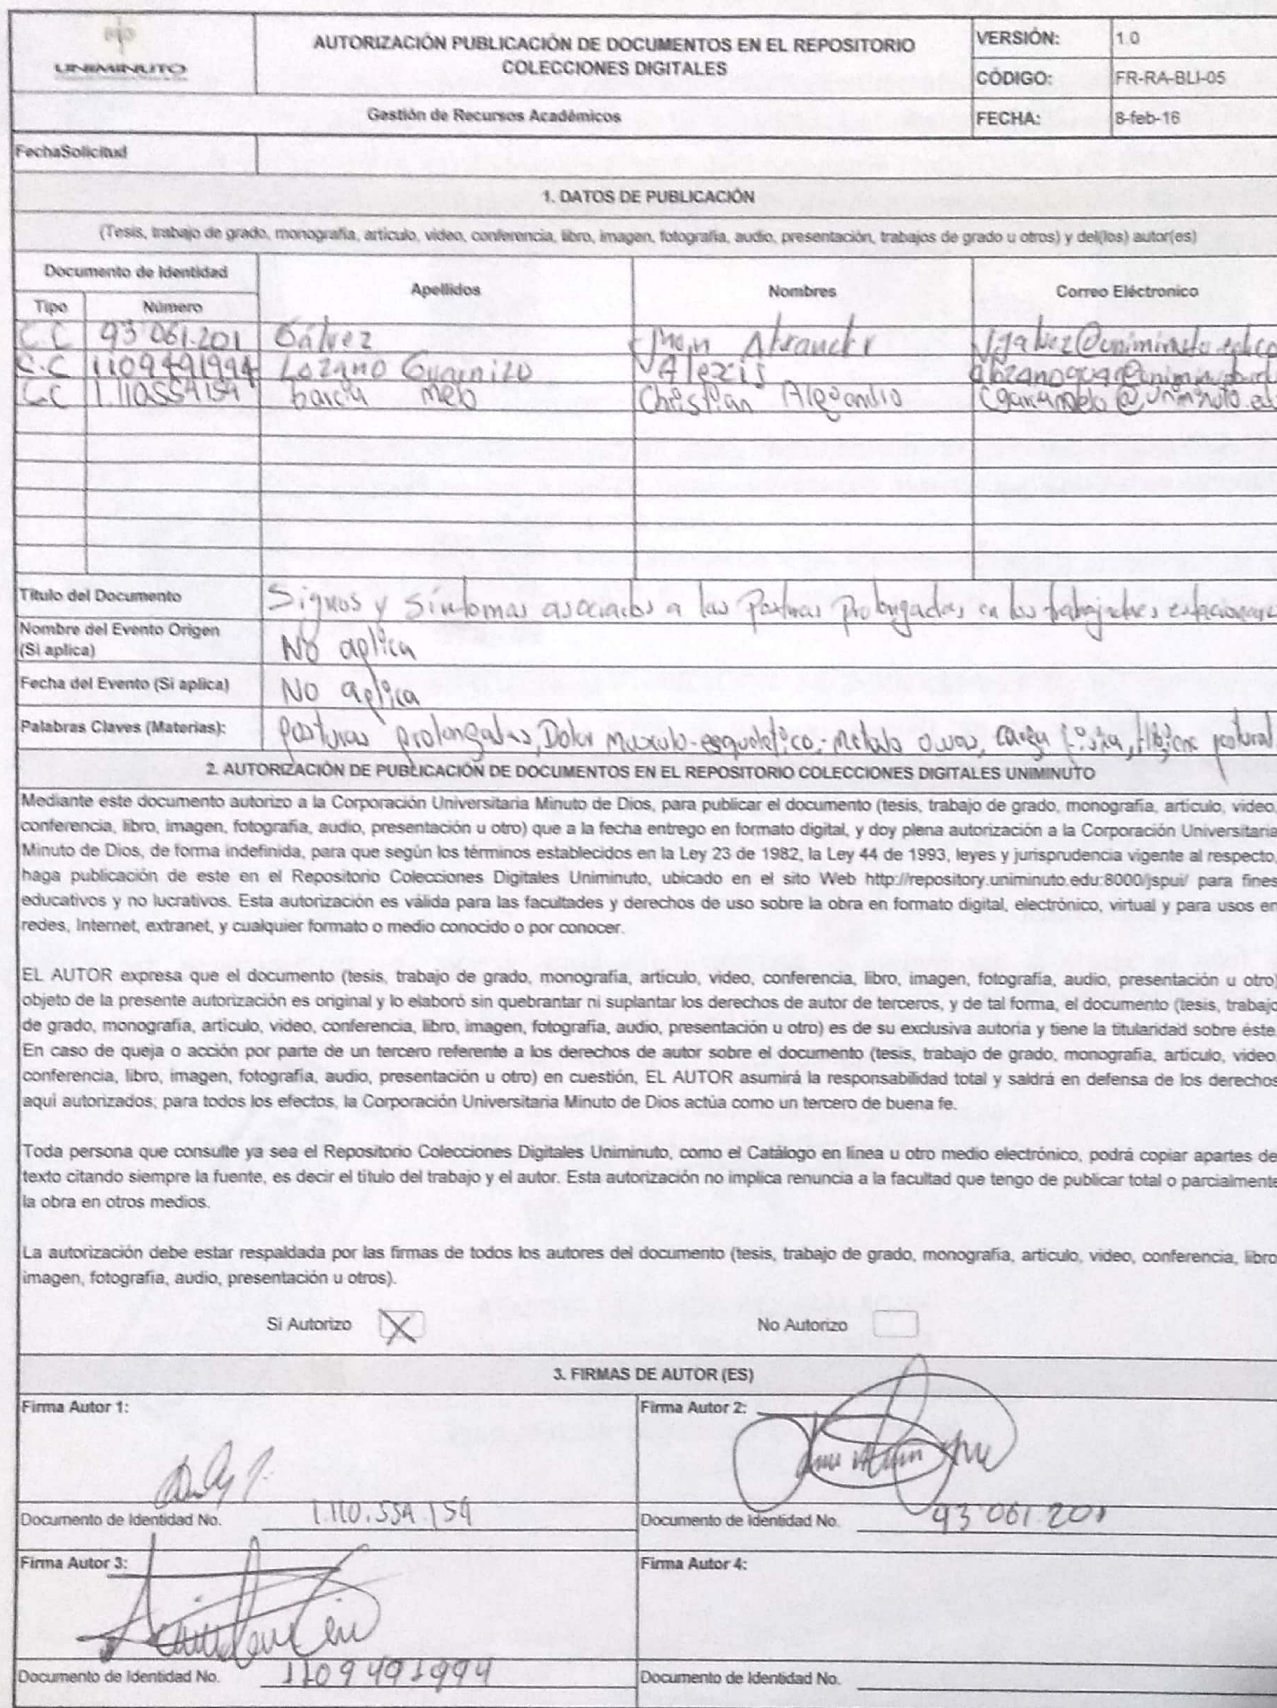 UNIMINUTO
AUTORIZACIÓN PUBLICACIÓN DE DOCUMENTOS EN EL REPOSITORIO
COLECCIONES DIGITALES
VERSIÓN: 1.0
CÓDIGO: FR-RA-BLI-05
Gestión de Recursos Académicos
FECHA: 8-feb-16
FechaSolicitud
1. DATOS DE PUBLICACIÓN
(Tesis, trabajo de grado, monografía, artículo, video, conferencia, libro, imagen, fotografía, audio, presentación, trabajos de grado u otros) y del(los) autor(es)
Documento de Identidad Apellidos Nombres Correo Eléctronico
Tipo Número
C.C 93'061.201 Gálvez
C.C 1109491994 Lozano Guarnizo Alexis
CC 1.110554159 Garcia Melo Christian Alejandro
Título del Documento Signos y Síntomas asociados a las Posturas Prolongadas en los trabajadores
Nombre del Evento Origen
(Si aplica) No aplica
Fecha del Evento (Si aplica) No aplica
Palabras Claves (Materias): Posturas prolongadas, Dolor musculo-esqueletico, carga física, Higiene postural
2. AUTORIZACIÓN DE PUBLICACIÓN DE DOCUMENTOS EN EL REPOSITORIO COLECCIONES DIGITALES UNIMINUTO
Mediante este documento autorizo a la Corporación Universitaria Minuto de Dios, para publicar el documento (tesis, trabajo de grado, monografía, artículo, video,
conferencia, libro, imagen, fotografía, audio, presentación u otro) que a la fecha entrego en formato digital, y doy plena autorización a la Corporación Universitaria
Minuto de Dios, de forma indefinida, para que según los términos establecidos en la Ley 23 de 1982, la Ley 44 de 1993, leyes y jurisprudencia vigente al respecto,
haga publicación de este en el Repositorio Colecciones Digitales Uniminuto, ubicado en el sitio Web http://repository.uniminuto.edu:8000/jspui/ para fines
educativos y no lucrativos. Esta autorización es válida para las facultades y derechos de uso sobre la obra en formato digital, electrónico, virtual y para usos en
redes, Internet, extranet, y cualquier formato o medio conocido o por conocer.
EL AUTOR expresa que el documento (tesis, trabajo de grado, monografía, artículo, video, conferencia, libro, imagen, fotografía, audio, presentación u otro)
objeto de la presente autorización es original y lo elaboró sin quebrantar ni suplantar los derechos de autor de terceros, y de tal forma, el documento (tesis, trabajo
de grado, monografía, artículo, video, conferencia, libro, imagen, fotografía, audio, presentación u otro) es de su exclusiva autoría y tiene la titularidad sobre éste.
En caso de queja o acción por parte de un tercero referente a los derechos de autor sobre el documento (tesis, trabajo de grado, monografía, artículo, video,
conferencia, libro, imagen, fotografía, audio, presentación u otro) en cuestión, EL AUTOR asumirá la responsabilidad total y saldrá en defensa de los derechos
aquí autorizados; para todos los efectos, la Corporación Universitaria Minuto de Dios actúa como un tercero de buena fe.
Toda persona que consulte ya sea el Repositorio Colecciones Digitales Uniminuto, como el Catálogo en línea u otro medio electrónico, podrá copiar apartes de
texto citando siempre la fuente, es decir el título del trabajo y el autor. Esta autorización no implica renuncia a la facultad que tengo de publicar total o parcialmente
la obra en otros medios.
La autorización debe estar respaldada por las firmas de todos los autores del documento (tesis, trabajo de grado, monografía, artículo, video, conferencia, libro
imagen, fotografía, audio, presentación u otros).
Si Autorizo X No Autorizo
3. FIRMAS DE AUTOR (ES)
Firma Autor 1: Firma Autor 2:
Documento de Identidad No. 1.110.554.159 Documento de Identidad No. 93'061.201
Firma Autor 3: Firma Autor 4:
Documento de Identidad No. 1109491994 Documento de Identidad No.